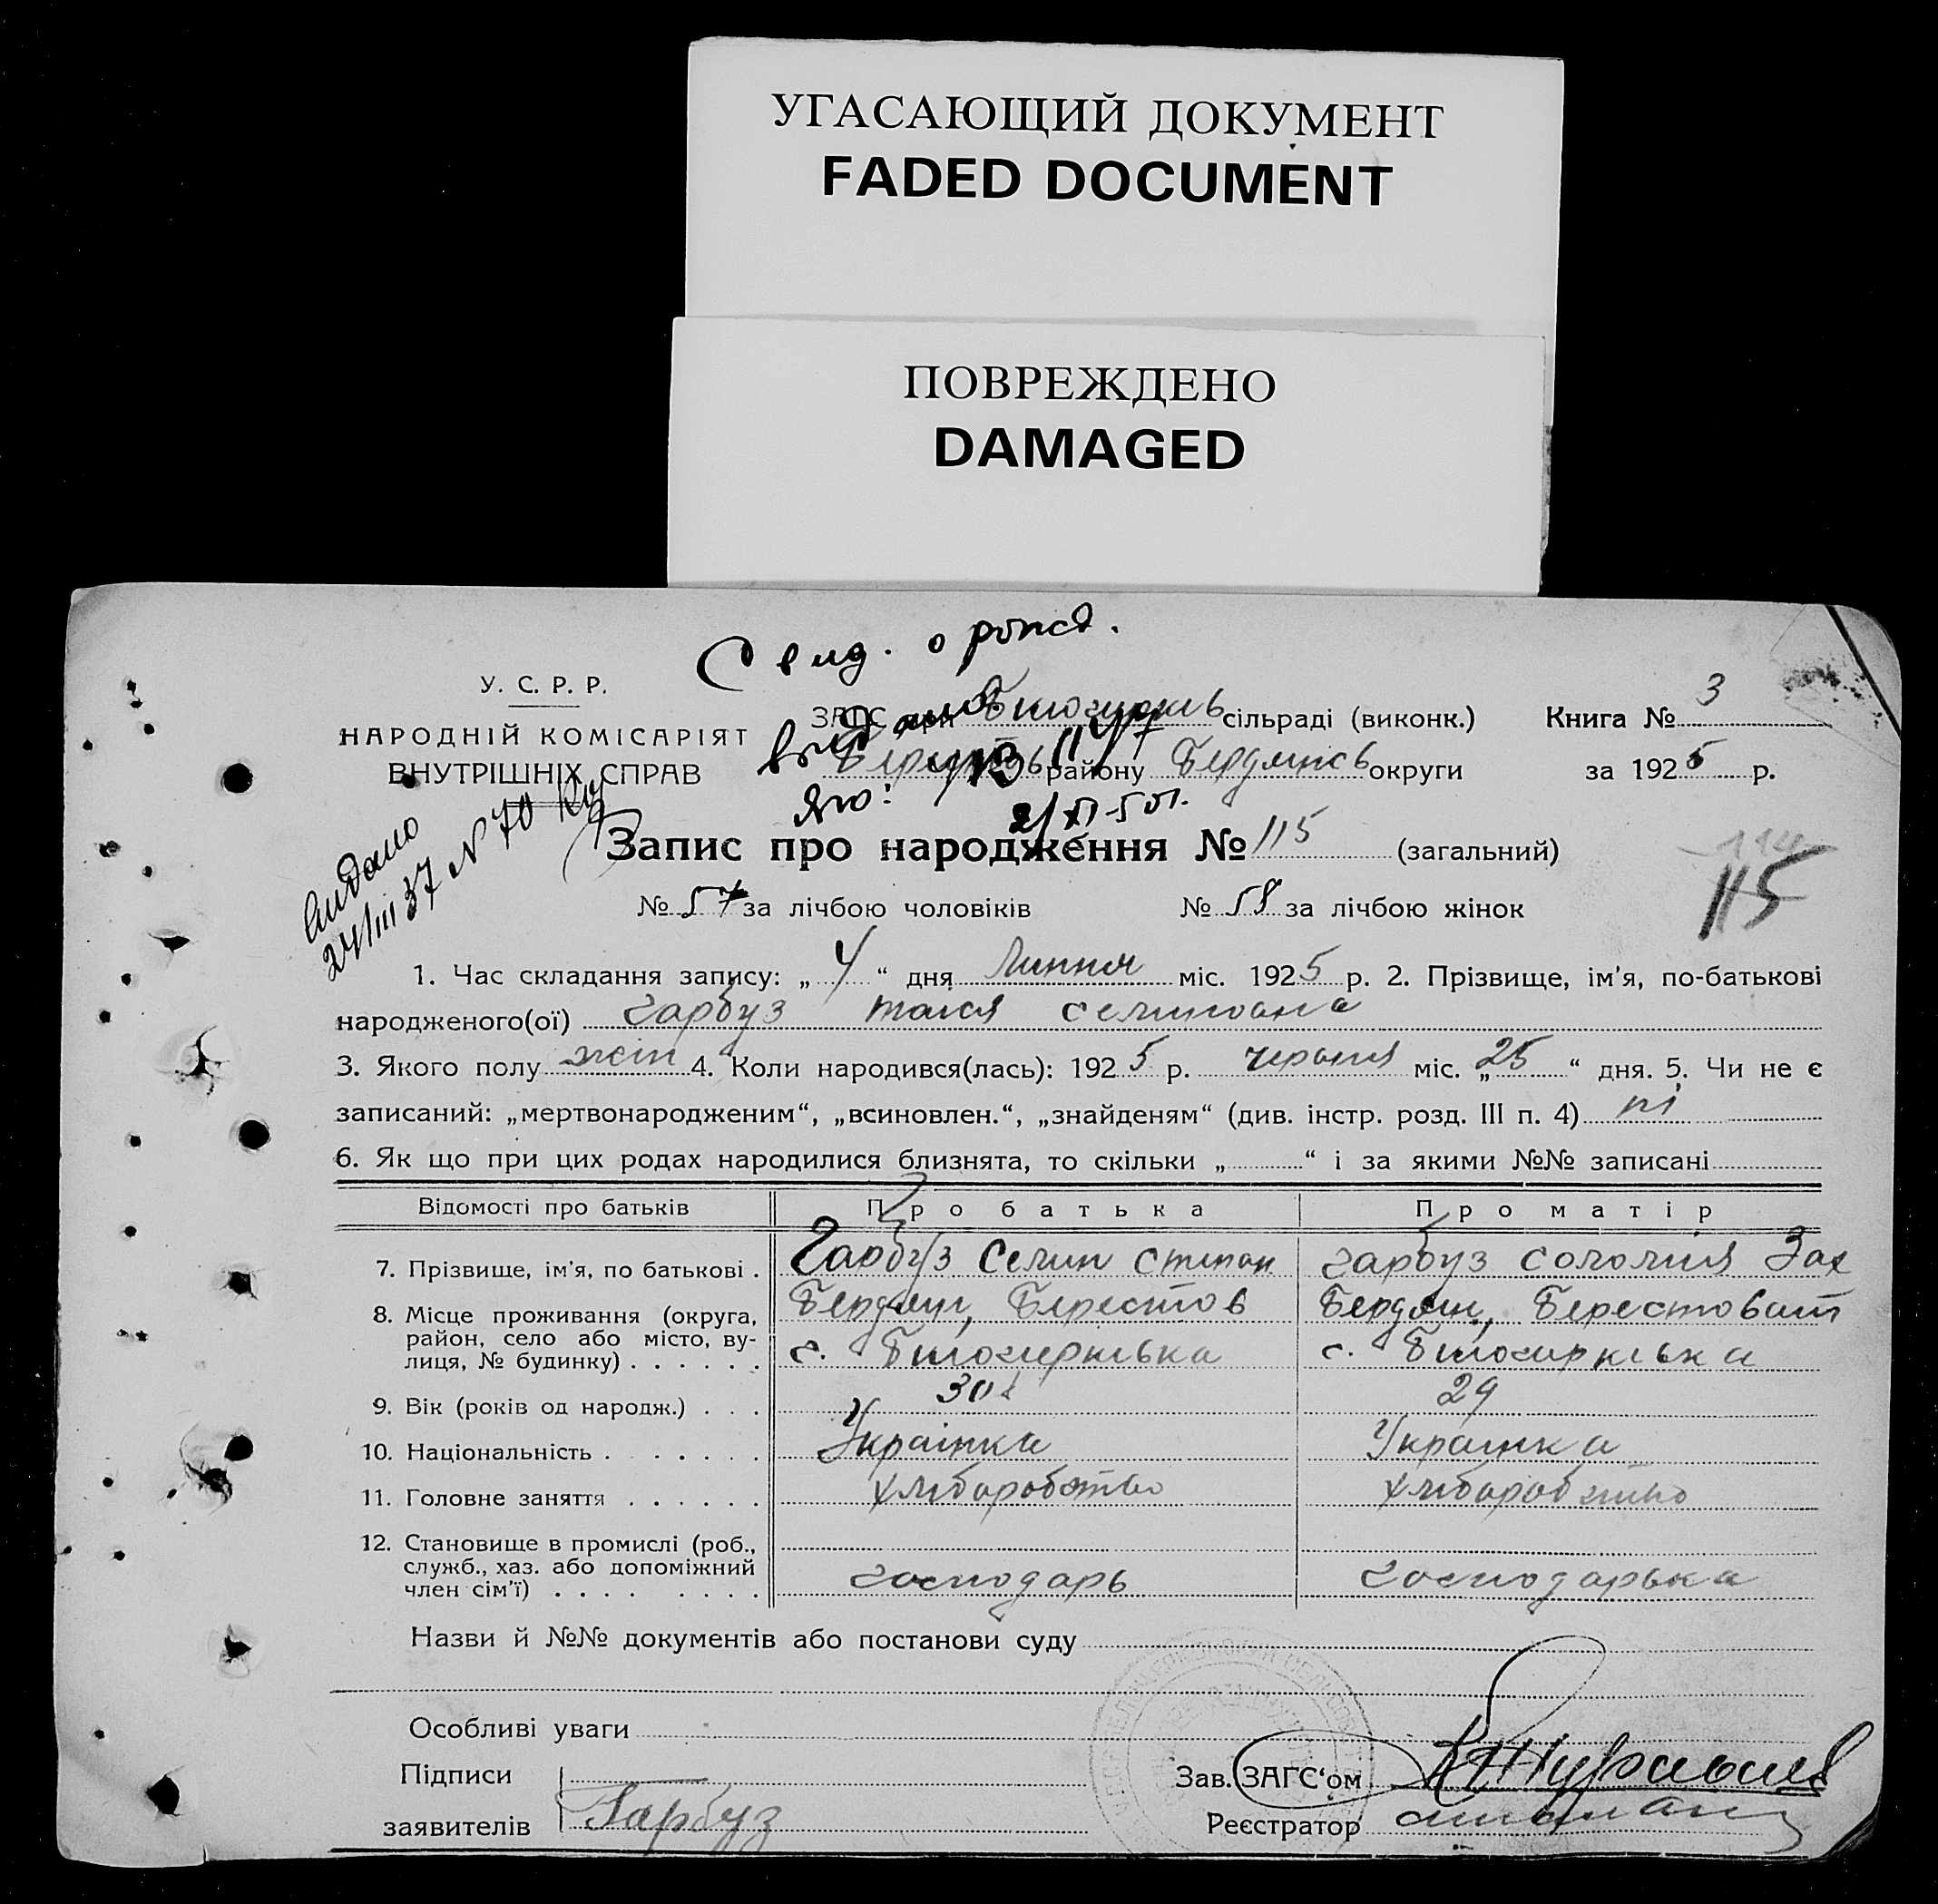 УГАСАЮЩИЙ ДОКУМЕНТ
FADED DOCUMENT
ПОВРЕЖДЕНО
DAMAGED
Свид. о рожд.
У. С. Р. Р.
ЗАГС при сільраді (виконк.) Книга № 3
НАРОДНІЙ КОМІСАРІЯТ
ВНУТРІШНІХ СПРАВ
району Бердянсь округи за 1925 р.
видано
24/III 37 № 70
Запис про народження № 115 (загальний)
115
№ 57 за лічбою чоловіків № 58 за лічбою жінок
1. Час складання запису: „ 4 “ дня Липня міс. 1925 р. 2. Прізвище, ім'я, по-батькові
народженого(ої) Гарбуз Таися
3. Якого полу жін 4. Коли народився(лась): 1925 р. червня міс. „ 25 “ дня. 5. Чи не є
записаний: „мертвонародженим“, „всиновлен.“, „знайденям“ (див. інстр. розд. III п. 4) ні
6. Як що при цих родах народилися близнята, то скільки „ “ і за якими №№ записані
Відомості про батьків Про батька Про матір
7. Прізвище, ім'я, по батькові . Гарбуз Семин Степан Гарбуз Соломія Зах
8. Місце проживання (округа, Бердянц, Берестов Бердян, Берестоват
район, село або місто, ву-
лиця, № будинку) . . . . . . с. Білоцерківка с. Білоцирківка
9. Вік (років од народж.) . . . 30 29
10. Національність . . . . . . Українка Українка
11. Головне заняття . . . . . . хліборобство хліборобство
12. Становище в промислі (роб.,
служб., хаз. або допоміжний
член сім'ї) . . . . . . . . господарь господарька
Назви й №№ документів або постанови суду
Особливі уваги
Підписи
заявителів Гарбуз
Зав. ЗАГС‘ом
Реєстратор